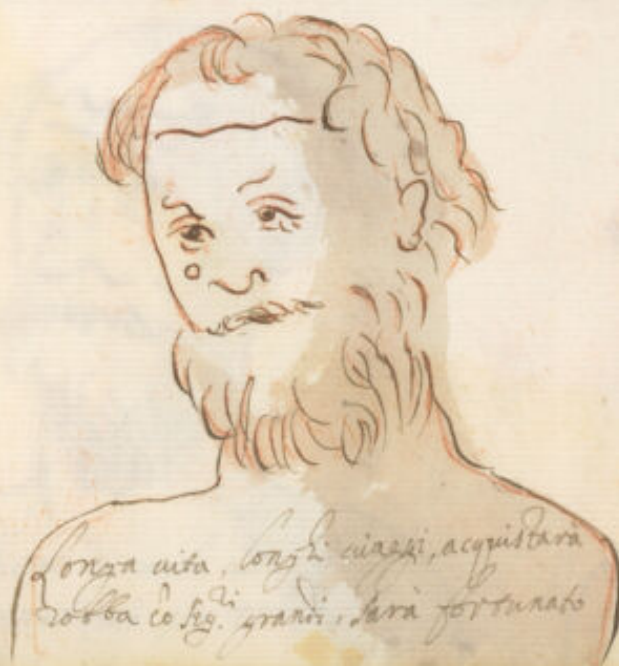 Longa vita, longhi viaggi, acquistarà
robba co Sig.ri grandi, sarà fortunato